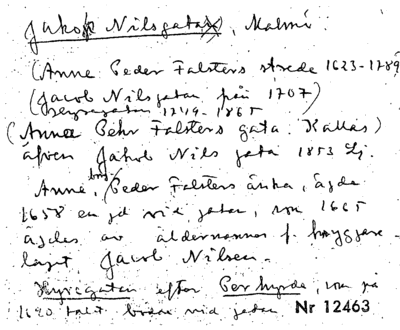 Jakob Nilsgatan, Malmö
(Anne Peder Falsters strede 1623-1789
(Jacob Nilsgatan från 1707)
Hyregatan 1749-1865
(Anna Pehr Falsters gata. Kallas)
äfven Jakob Nils gata 1853 Lj.
Anne, Peder Falsters änka, ägde
1658 en gd vid gatan, som 1665
ägdes av åldermannen f. bryggare-
laget Jacob Nilsen.
Hyregatan efter Per Hyrde, som på
1690 talet bodde vid gatan Nr 12463